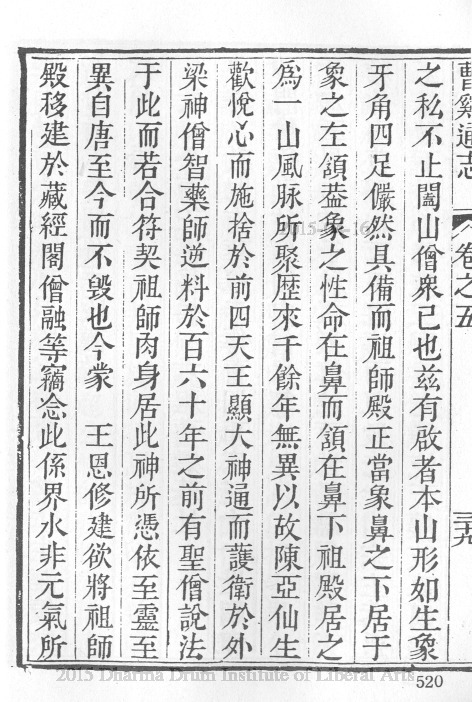 曹谿通志 卷之五 三九
之私不止闔山僧衆已也兹有啟者本山形如生象
牙角四足儼然具備而祖師殿正當象鼻之下居于
象之左頷葢象之性命在鼻而頷在鼻下祖殿居之
爲一山風脉所聚歴來千餘年無異以故陳亞仙生
歡悅心而施捨於前四天王顯大神通而護衛於外
梁神僧智藥師逆料於百六十年之前有聖僧說法
于此而若合符契祖師肉身居此神所憑依至靈至
異自唐至今而不毀也今蒙　王恩修建欲將祖師
殿移建於藏經閣僧融等竊念此係界水非元氣所
520
2015 Dharma Drum Institute of Liberal Arts